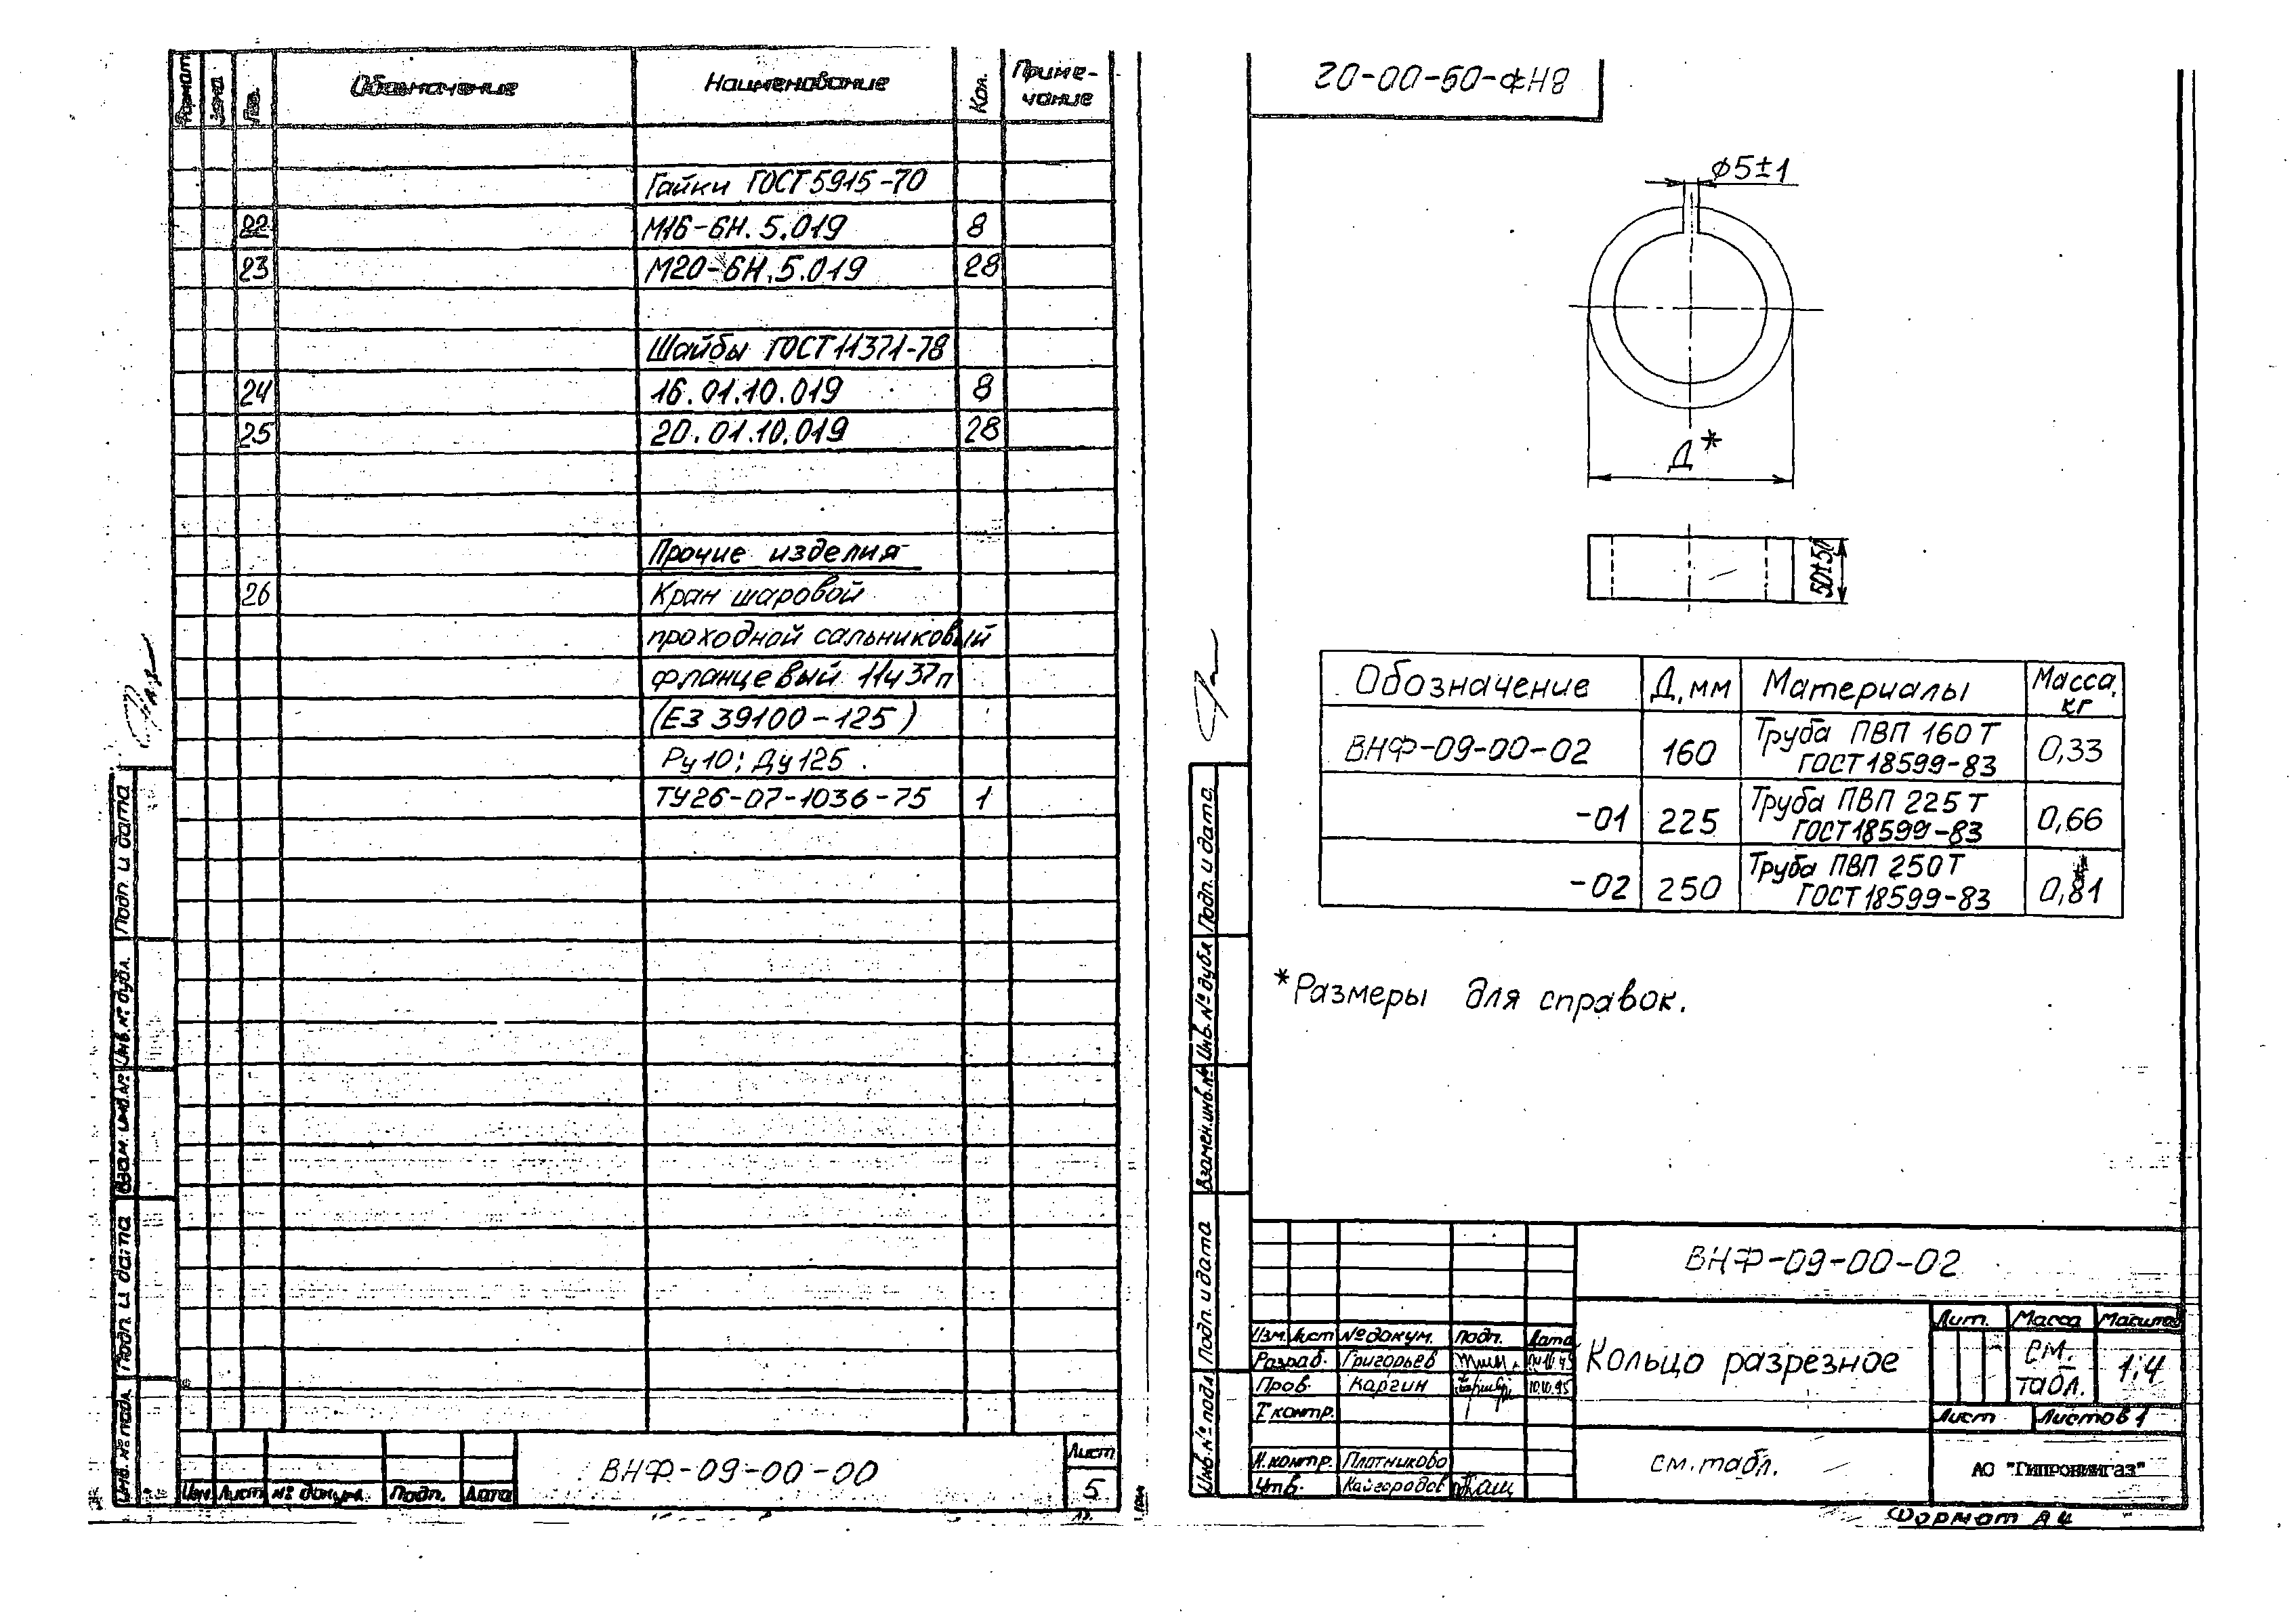 Формат Зона Поз. Обозначение Наименование Кол. Приме-
чание
Гайки ГОСТ 5915-70
22 М16-6Н.5.019 8
23 М20-6Н.5.019 28
Шайбы ГОСТ 11371-78
24 16.01.10.019 8
25 20.01.10.019 28
Прочие изделия
26 Кран шаровой
проходной сальниковый
фланцевый 11ч37п
(ЕЗ 39100-125)
Ру10; Ду125
ТУ26-07-1036-75 1
Подп. и дата
Инв. № дубл.
Взам. инв. №
Подп. и дата
Инв. № подл.
Изм Лист № докум. Подп. Дата
ВНФ-09-00-00
Лист
5
ВНФ-09-00-02
ϕ5±1
Д*
50±50
Обозначение Д, мм Материалы Масса, кг
ВНФ-09-00-02 160 Труба ПВП 160Т
ГОСТ 18599-83 0,33
-01 225 Труба ПВП 225Т
ГОСТ 18599-83 0,66
-02 250 Труба ПВП 250Т
ГОСТ 18599-83 0,81
*Размеры для справок.
Подп. и дата
Инв. № дубл
Взамен.инв.№
Подп. и дата
Инв. № подл
ВНФ-09-00-02
Изм. Лист № докум. Подп. Дата
Разраб. Григорьев
Пров. Каргин 10.10.95
Т контр.
Н.контр. Плотникова
Утв. Кайгородов
Кольцо разрезное
Лит. Масса Масштаб
см. табл. 1:4
Лист Листов 1
см. табл.
АО "Гипрониигаз"
Формат А4